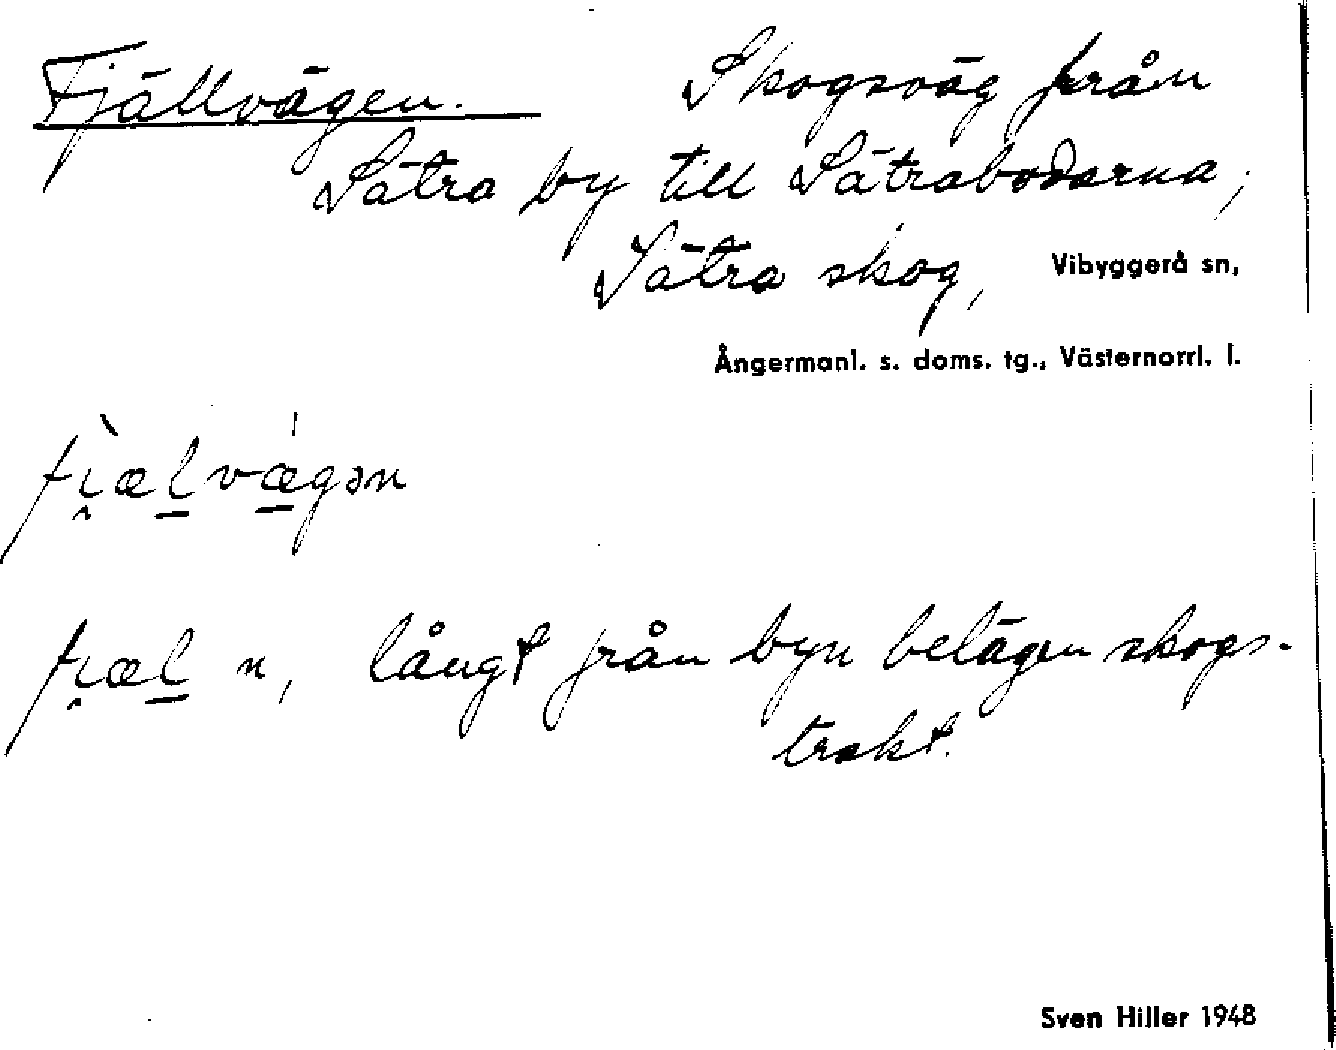 Fjällvägen. Skogsväg från
Sätra by till Sätrabodarna,
Sätra skog, Vibyggerå sn,
Ångermanl. s. doms. tg., Västernorrl. l.
fi̯æ̀l̲vǽ̲gən
fi̯æl̲ n, långt från byn belägen skogs-
trakt.
Sven Hiller 1948